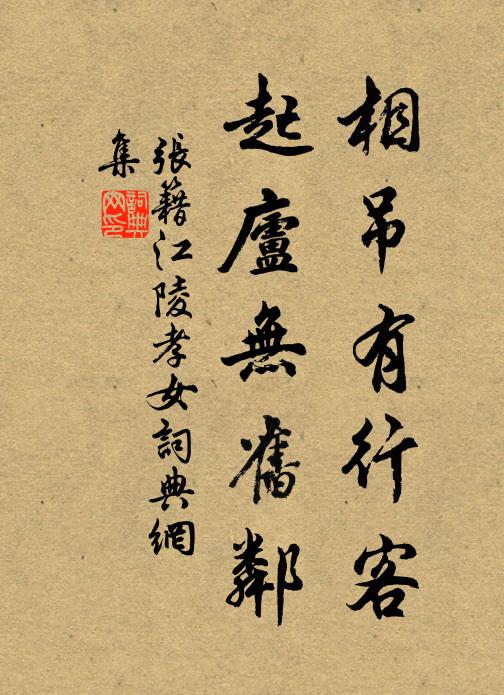 相吊有行客
起廬無舊鄰
張籍江陵孝女詞典網
集
詞典
网印